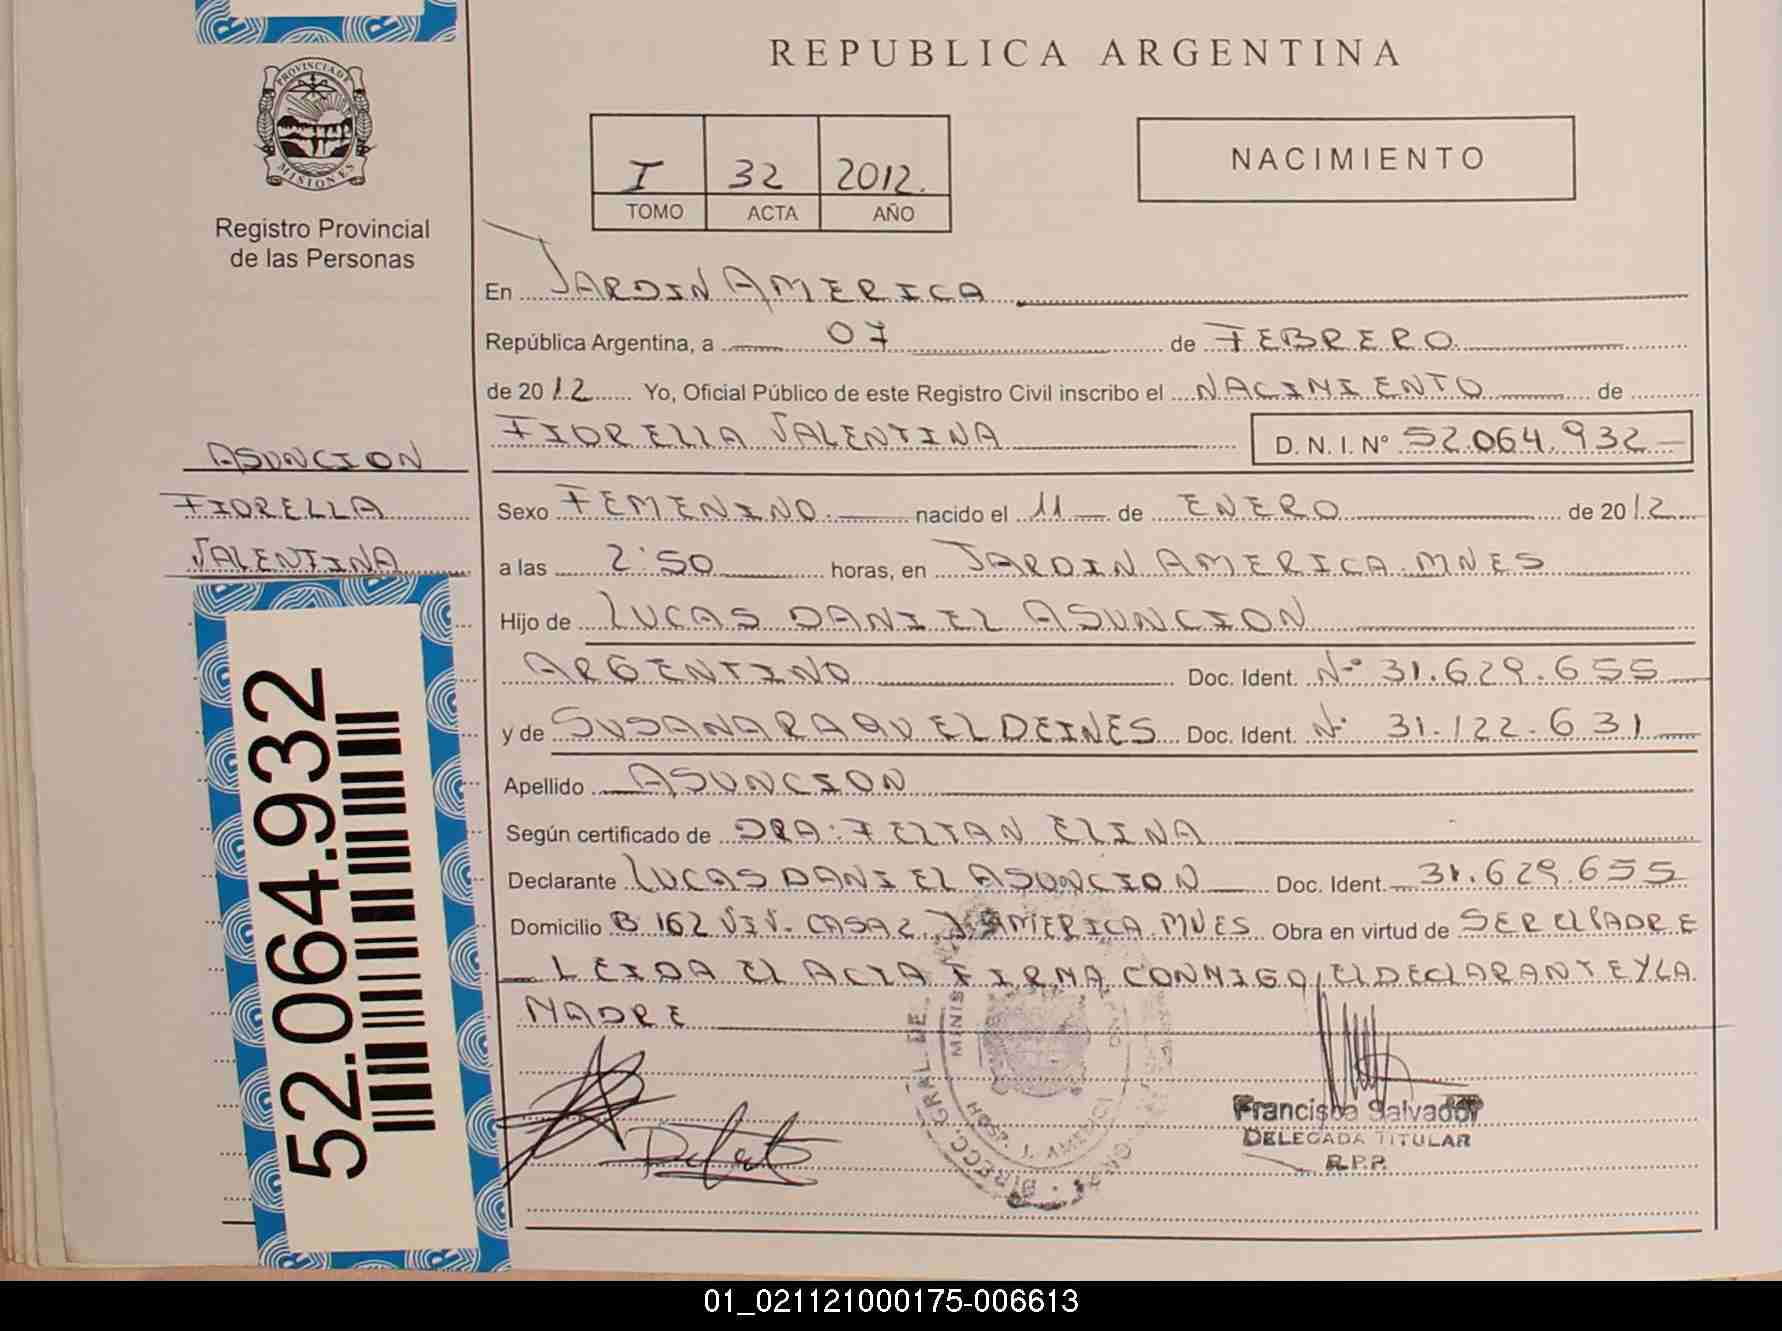 REPUBLICA ARGENTINA
PROVINCIA DE
MISIONES
Registro Provincial
de las Personas
I 32 2012.
TOMO ACTA AÑO
NACIMIENTO
En JARDIN AMERICA
República Argentina, a 07 de FEBRERO
de 2012 Yo, Oficial Público de este Registro Civil inscribo el NACIMIENTO de
FIORELLA VALENTINA D. N. I. Nº 52.064.932
ASUNCION
FIORELLA
VALENTINA
Sexo FEMENINO nacido el 11 de ENERO de 2012
a las 2:50 horas, en JARDIN AMERICA. MNES
Hijo de LUCAS DANIEL ASUNCION
ARGENTINO Doc. Ident. Nº 31.629.655
y de SUSANA RAQUEL DEINES Doc. Ident. Nº 31.122.631
Apellido ASUNCION
Según certificado de DRA: FELTAN ELINA
Declarante LUCAS DANIEL ASUNCION Doc. Ident. 31.629.655
Domicilio B 162 VIV. CASA 2 J. AMERICA. MNES Obra en virtud de SER EL PADRE
LEIDA EL ACTA FIRMA CONMIGO, EL DECLARANTE Y LA
MADRE
52.064.932
DIRECC. GRAL. DE
MINIS
J. AMERICA
Francisca Salvador
DELEGADA TITULAR
R.P.P.
01_021121000175-006613